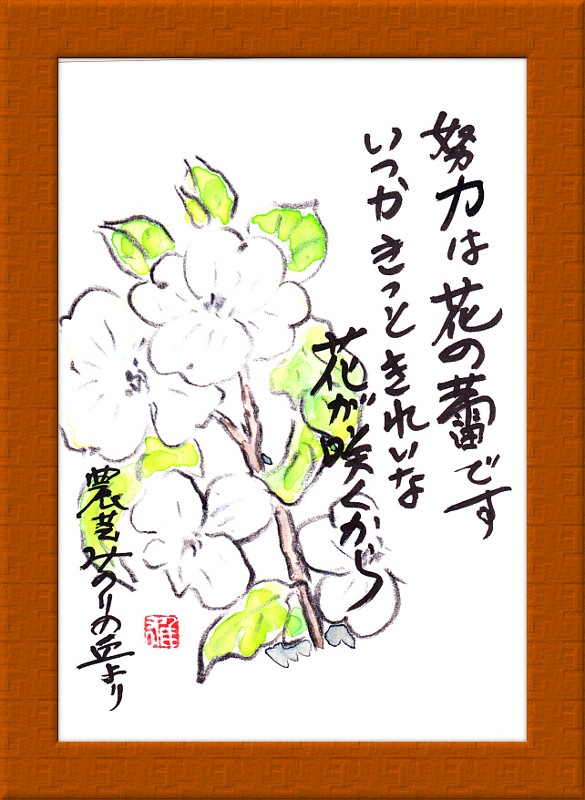 努力は花の蕾です
いつかきっときれいな
花が咲くから
農芸みのりの丘より
雅